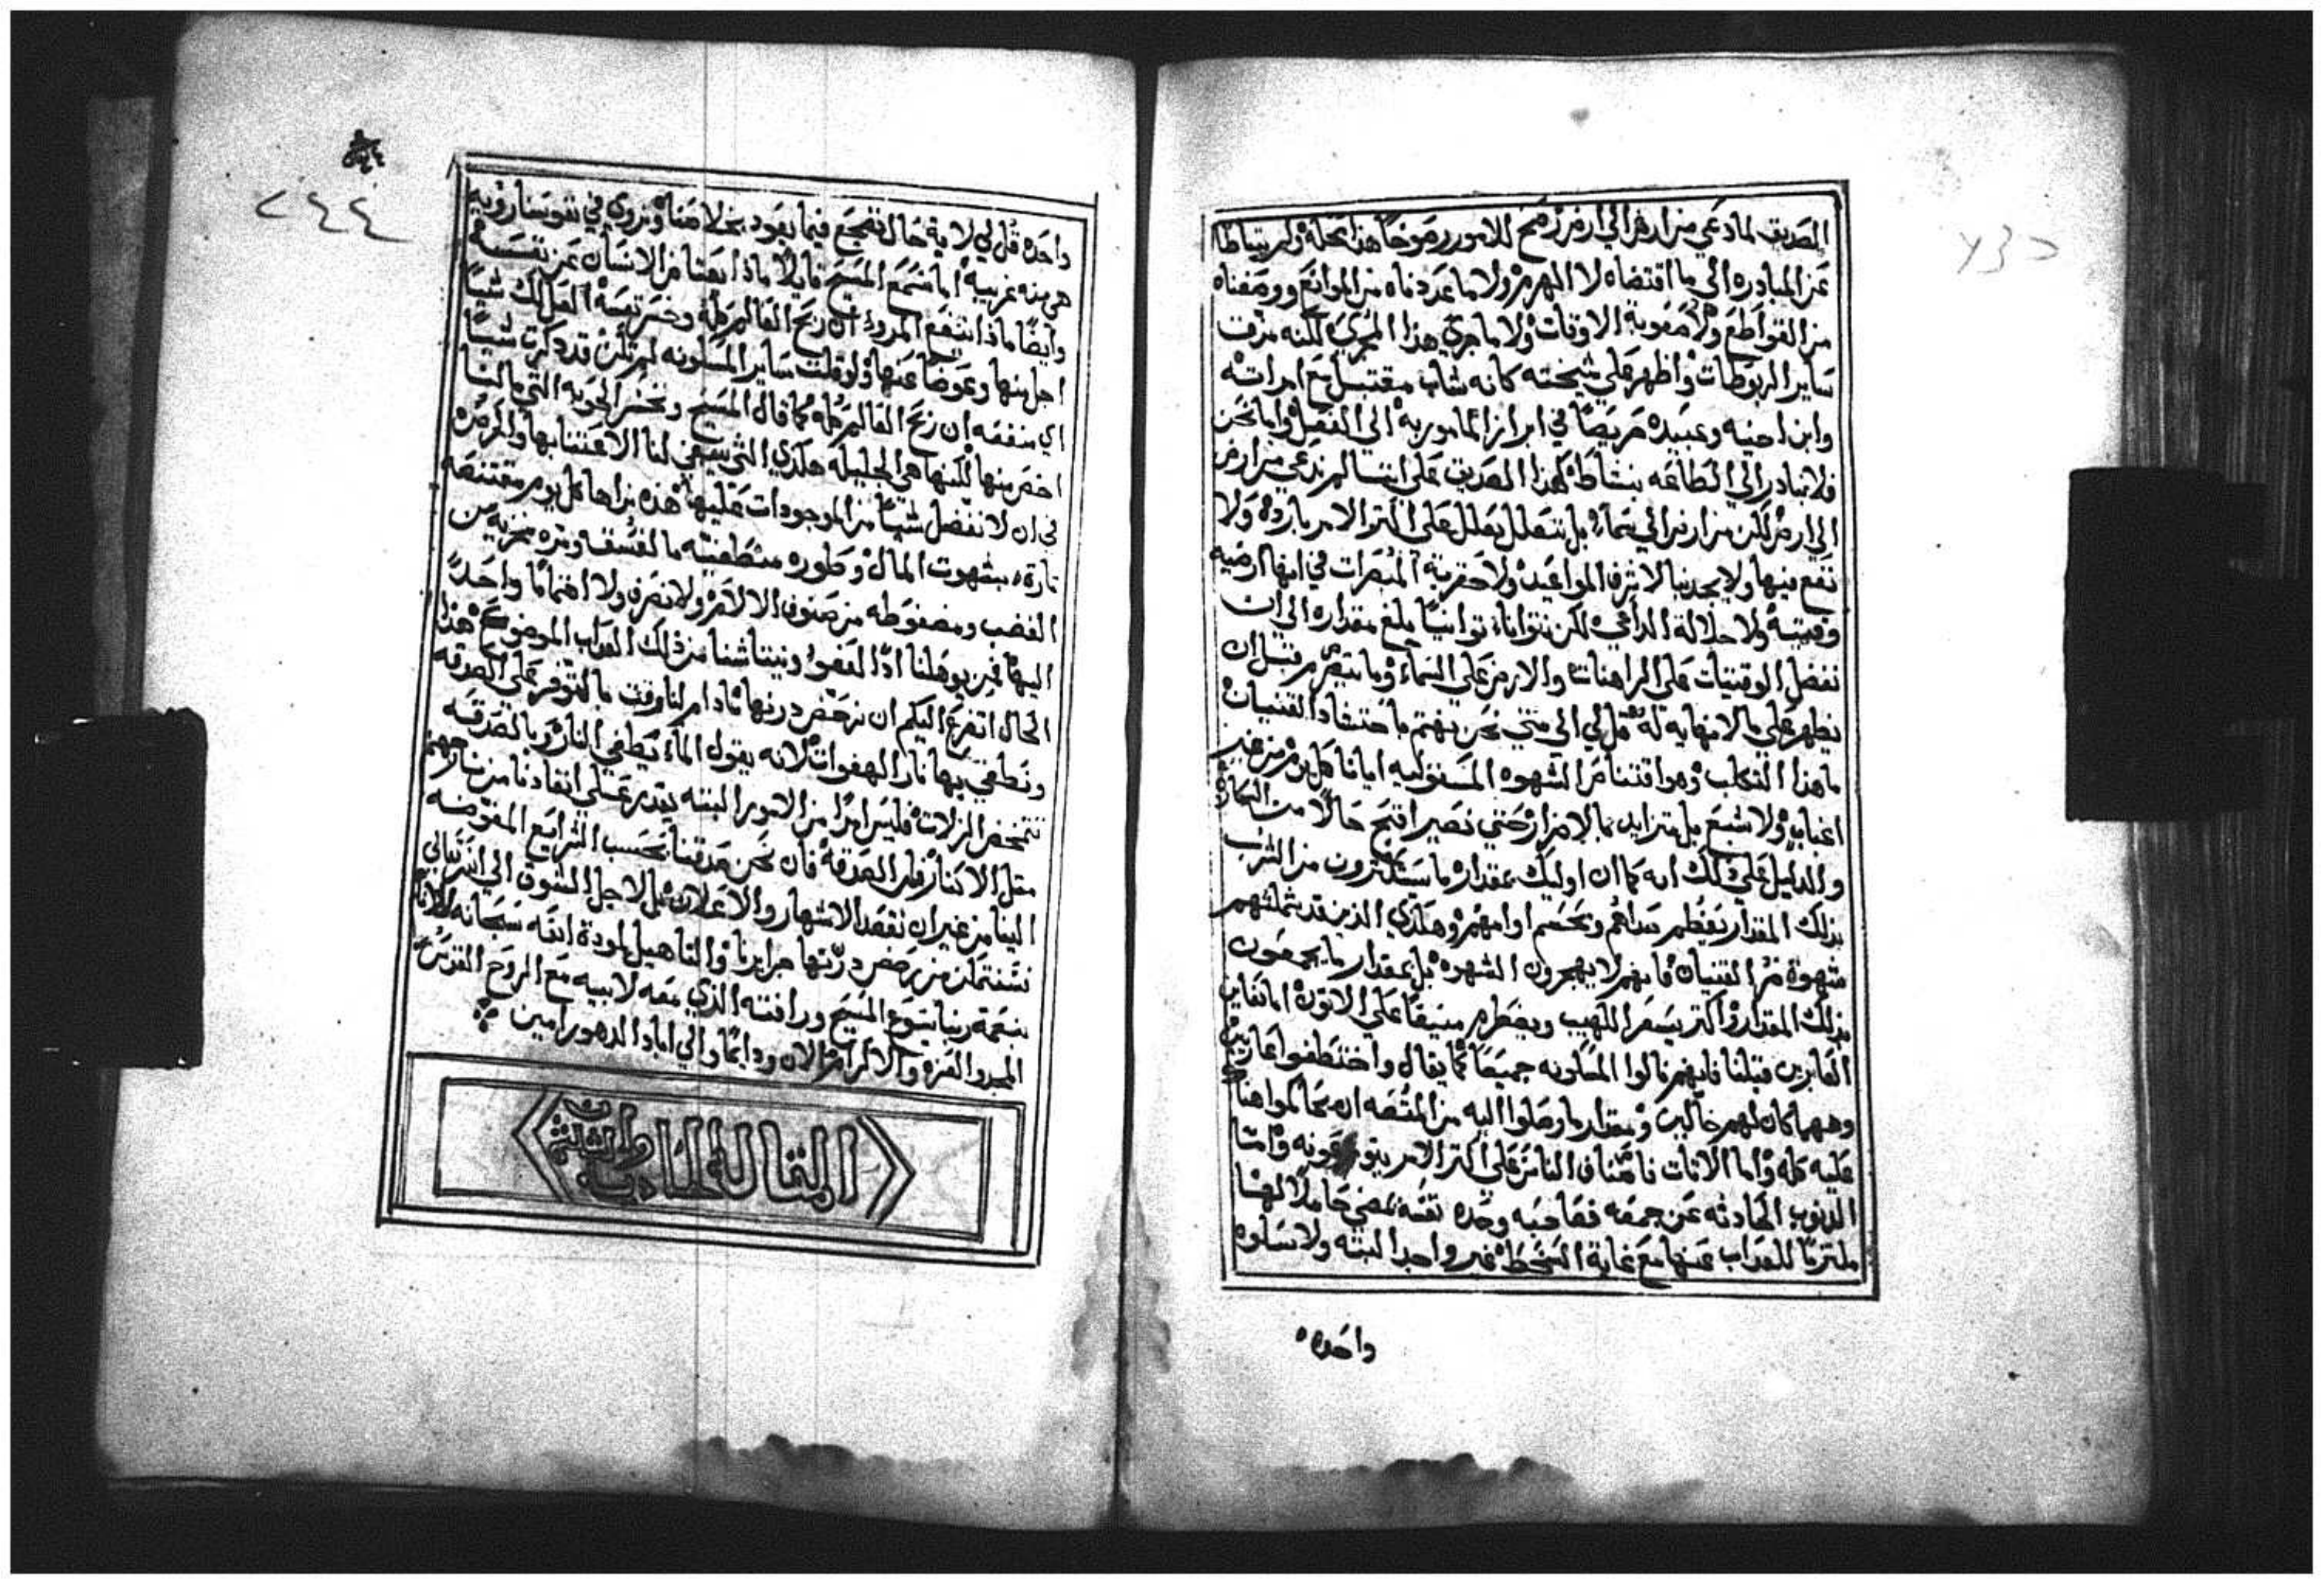 الصديق لما دعي من ارض الي ارض رمح للامور رموحًا هذا محله ولم يتباطا
عن المبادره الي ما اقتضاه لا الهرم ولا ما عددناه من الموانع ووصفناه
من القواطع ولا صعوبة الاوقات ولا ما جري هذا المجري لكنه مزق
ساير الربوطات واظهر علي شيخته كانه شاب مقتبل مع امراته
وابن اخيه وعبيده حريصًا في ابراز المامور به الي الفعل واما نحن
فلا نبادر الي الطاعه بنشاط كهذا الصديق علي اننا لم ندعي من ارض
الي ارض لكن من ارض الي سماء بل نتعلل بعلل علي اكثر الامر بارده ولا
نفع فيها ولا يجذبنا لا شرف المواعيد ولا حقرية المبصرات في انها ارضيه
وقتيه ولا جلالة الداعي لكن نتوانا توانيًا بلغ مقداره الي ان
نفضل الوقتيات علي الراهنات والارض علي السماء وما ينصرم قبل ان
يظهر علي ما لا نهايه له قل لي الي متي نحن نهتم باحتشاد القنيات
ما هذا التكلب وهو اقتنا من الشهوه المستوليه ايانا كل يوم من غير
اغباب ولا شبع بل يتزايد بنا الامر حتي نصير اقبح حالًا من السكارا
والدليل علي ذلك انه كما ان اوليك بمقدار ما يستكثرون من الشرب
بذلك المقدار يعظم صداهم ويحتدم اوامهم وهكذي الذين قد شملتهم
شهوة من القنيات فانهم لا يهجرون الشهوه بل بمقدار ما يجمعون
بذلك المقدار واكثر يسعر اللهيب ويضطرم منيفًا علي الاتون اما تعاين
الغابرين قبلنا فانهم نالوا المسكونه جميعًا كما يقال واختطفوا عاريين
وهمها كان لهم خاليين ومقدار ما وصلوا اليه من المنفعه ان يحاكموا هناك
عليه كله واما الاقتات فاصناف الناس علي اكثر الامر يتوزعونه واما
الذنوب الحادثه عن جمعه فصاحبه وحده نفسه يمضي حاملًا لها
ملتزمًا للعذاب عنها مع غاية السخط غير واجد البته ولا سلوه
واحده
٢٤٤
واحده قل لي لاية حال نضجع فيما يعود بخلاصنا ونروي في نفوسنا رويه
هي منه غريبه اما نسمع المسيح قايلًا ماذا يعتاض الانسان عن نفسه
وايضًا ماذا انتفع المرو ان ربح العالم كله وخسر نفسه العل لك شيًا
اجل منها وعوضًا عنها ولو قلت ساير المسكونه لم تكن قد ذكرت شيًا
اي منفعه ان ربح العالم كله كما قال المسيح ونخسر الحوبه التي ما لنا
اخص منها لكنها هي الجليله هكذي التي ينبغي لنا الاعتنا بها والحرص
في ان لا نفضل شيًا من الموجودات عليها هذه نراها كل يوم مقتنصه
تارة بشهوت المال وطوره منطغنه بالفسق ومره مخزيه من
الغضب ومضغوطه من صنوف الالام ولا نصرف ولا اهتمامًا واحدًا
اليها فمن يوهلنا اذا للعفو وينتاشنا من ذلك العذاب الموضوع هذا
الحال اتضرع اليكم ان نرحض درنها ما دام لنا وقت بالتوفر علي الصدقه
ونطفي بها نار الهفوات لانه يقول الماء يطفي النار وبالصدقه
تتمحض الزلات فليس امرًا من الامور البته يقدر علي انقاذنا من نار جهنم
مثل الاكثار من الصدقه فان نحن صدقنا بحسب الشرايع المفوضه
الينا من غير ان نقصد الاشهار والاعلان بل لاجل الشوق الي الله تعالي
سنتمكن من رحض درنها جرايرنا والتاهيل لمودة الله سبحانه لنا
بنعمة ربنا يسوع المسيح ورافته الذي معه لابيه مع الروح القدس
المجد والعزه والاكرام الان ودايمًا والي اباد الدهور امين
المقالة الحاديه والثلثون